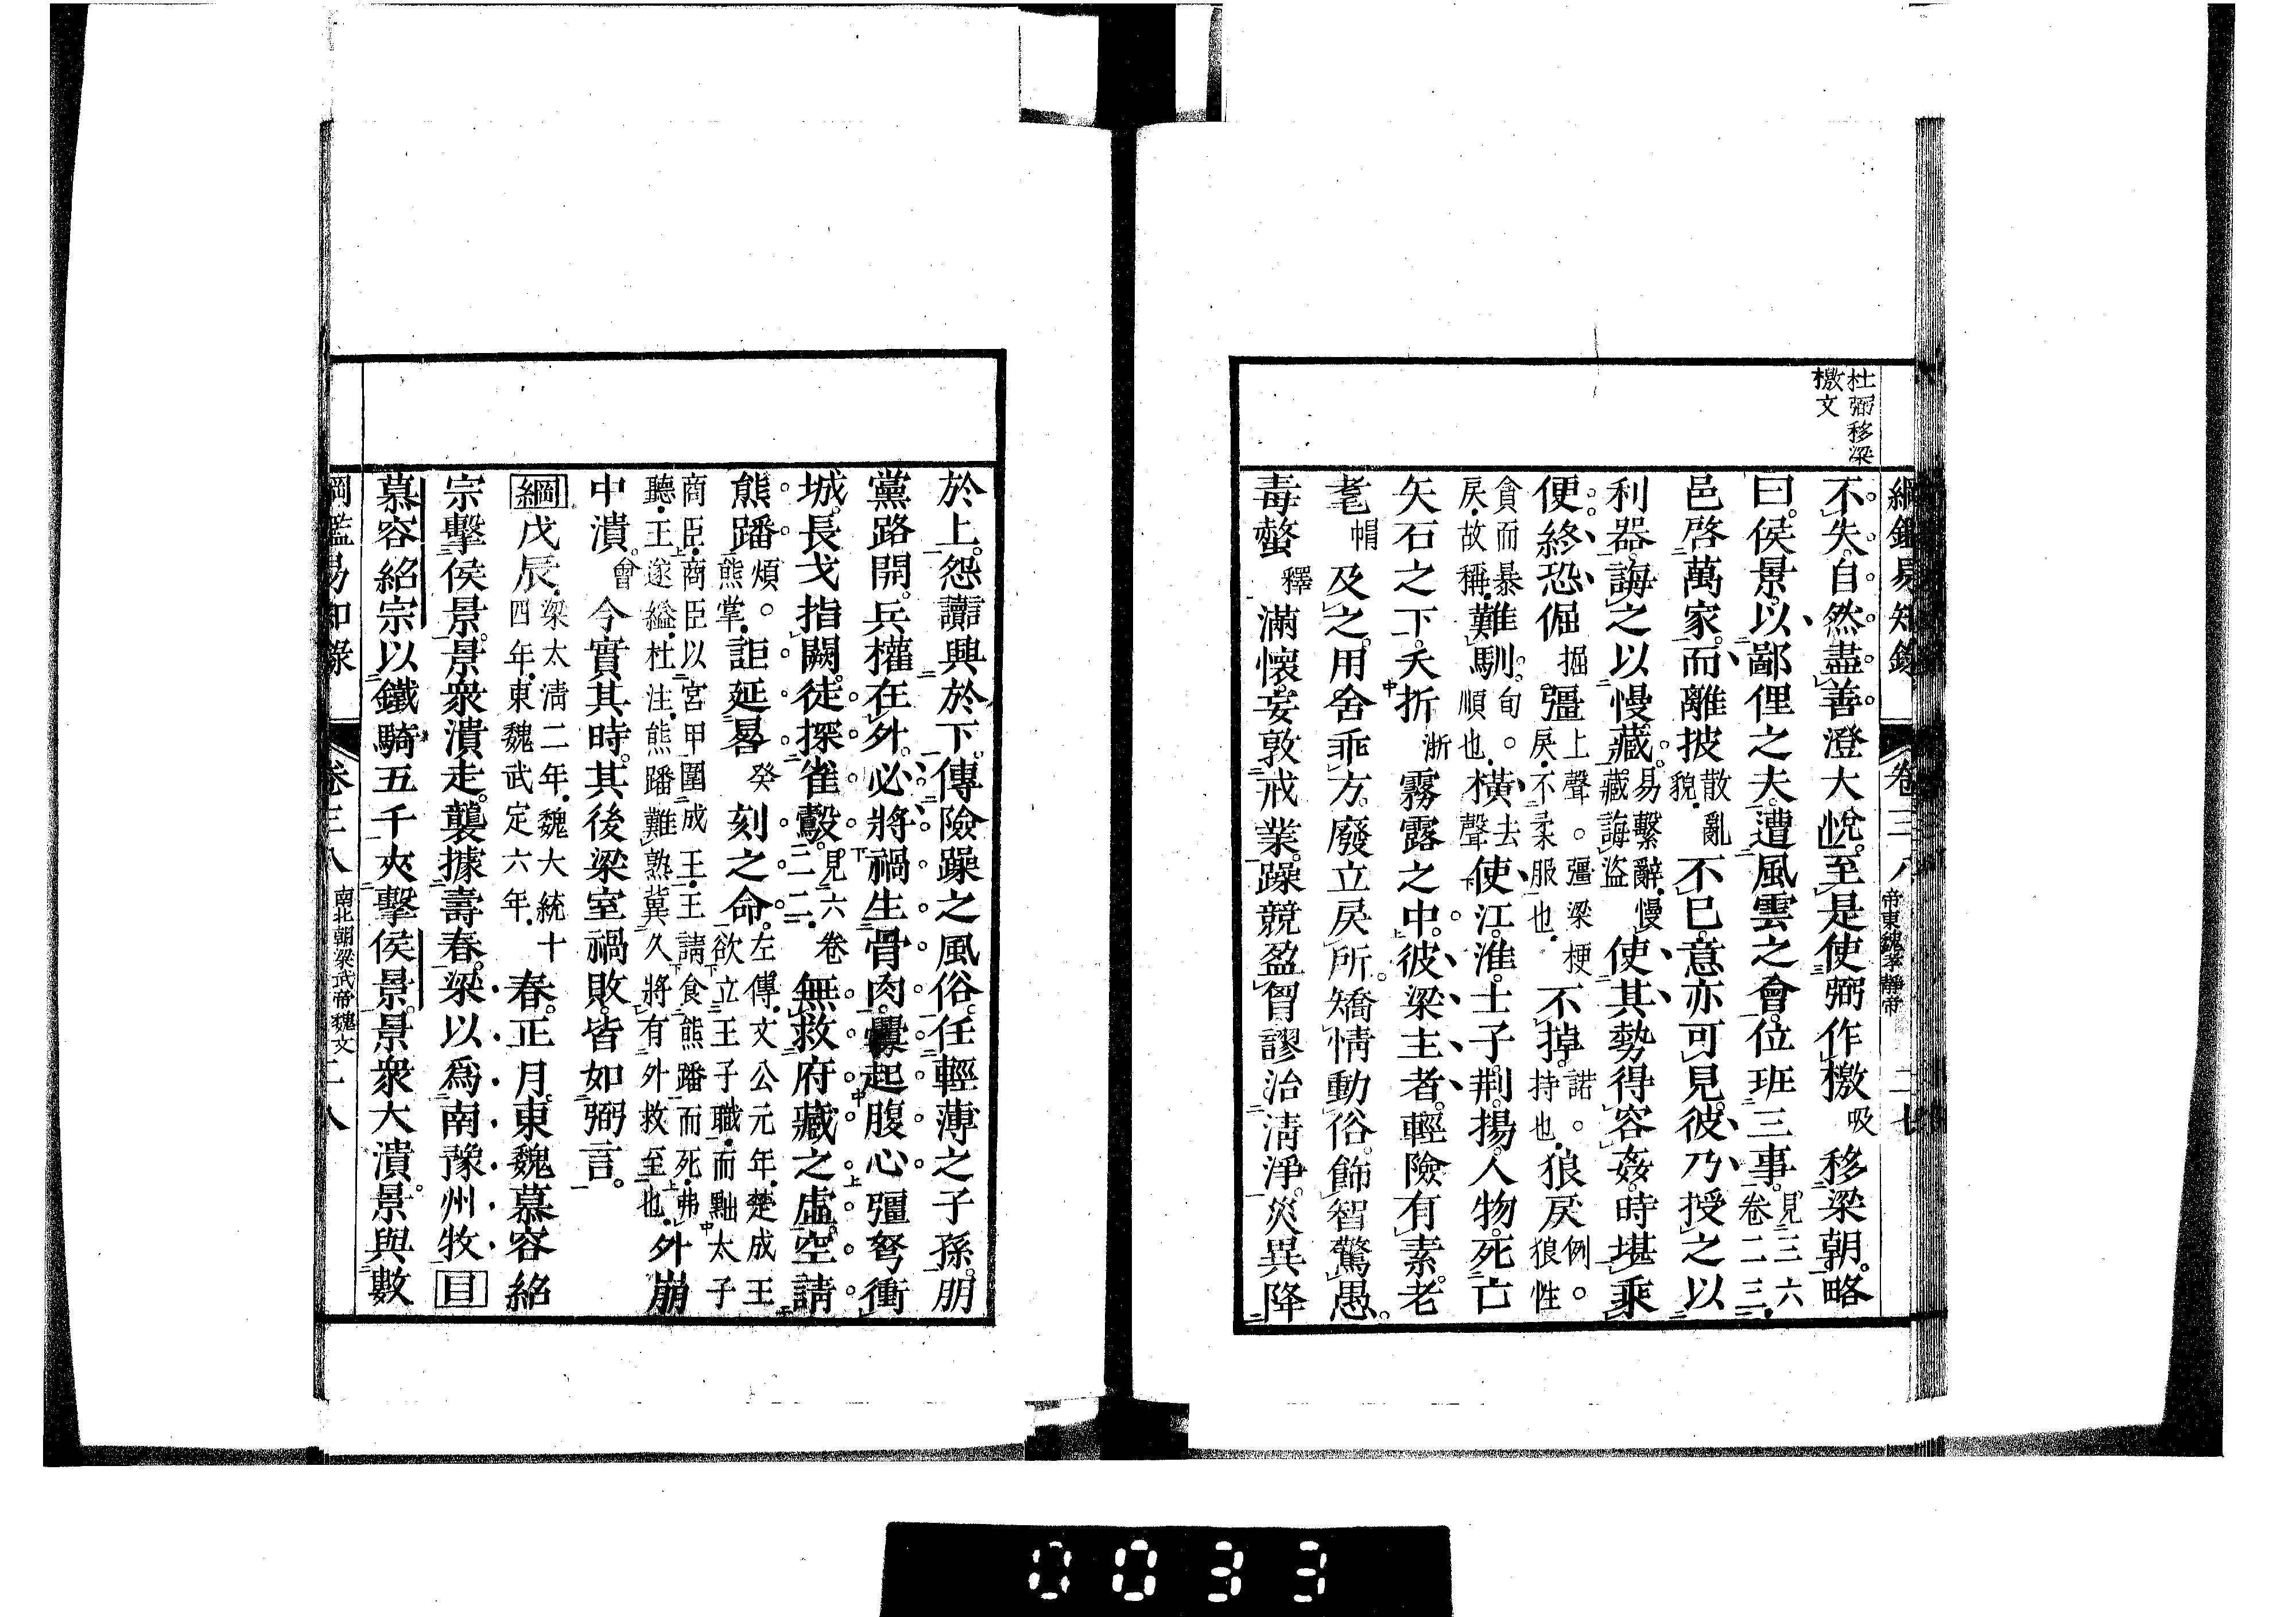 杜弼移梁
檄文
綱鑑易知錄 卷三八 帝東魏孝靜帝 二七
不失。自然盡善澄大悅。至是使弼作檄吸移梁朝。略
曰。侯景。以鄙俚之夫。遭風雲之會。位班三事。見三六卷二三。
邑啓萬家。而離披散亂貌。不已。意亦可見。彼乃授之以
利器。誨之以慢藏。易繫辭。慢藏誨盜使其勢得容姦。時堪乘
便。終恐倔掘彊上聲。彊梁梗戾。不柔服也。不掉。諾。持也。狼戾例。狼性
貪而暴戾。故稱。難馴。旬。順也。橫去聲使江。淮。士子。荆。揚。人物。死亡
矢石之下。夭折浙霧露之中。彼梁主者。輕險有素。老
耄帽及之。用舍乖方。廢立戾所。矯情動俗。飾智驚愚。
毒螫釋滿懷。妄敦戒業。躁競盈胷。謬治淸淨。災異降
於上。怨讟興於下。傳險躁之風俗。任輕薄之子孫。朋
黨路開。兵權在外。必將禍生骨肉。釁起腹心彊弩衝
城。長戈指闕。徒探雀鷇。見六卷二二。無救府藏之虛空請
熊蹯煩。熊掌。詎延晷癸刻之命。左傳。文公元年。楚成王欲立王子職。而黜太子
商臣。商臣以宮甲圍成王。王請食熊蹯而死。弗聽。王遂縊。杜注。熊蹯難熟。冀久將有外救至也。外崩
中潰。會今實其時。其後梁室禍敗。皆如弼言。
綱戊辰。梁太淸二年。魏大統十四年。東魏武定六年。春。正月。東魏慕容紹
宗擊侯景。景衆潰走。襲據壽春。梁以爲南豫州牧目
慕容紹宗以鐵騎五千夾擊侯景。景衆大潰。景與數
綱鑑易知錄 卷三八 南北朝梁武帝魏文 二八
0033